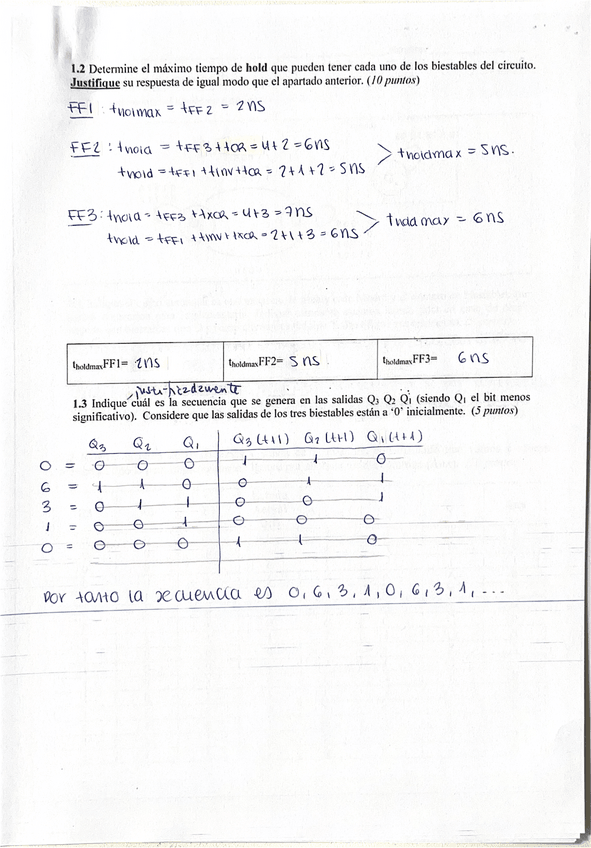 1.2 Determine el máximo tiempo de hold que pueden tener cada uno de los biestables del circuito.
Justifique su respuesta de igual modo que el apartado anterior. (10 puntos)
FF1: tholmax = tFF2 = 2ns
FF2: thold = tFF3 + tOR = 4+2 = 6ns
thold = tFF1 + tINV + tOR = 2+1+2 = 5ns
tholdmax = 5ns.
FF3: thold = tFF3 + tXOR = 4+3 = 7ns
thold = tFF1 + tINV + tXOR = 2+1+3 = 6ns
tholdmax = 6ns
tholdmaxFF1= 2ns tholdmaxFF2= 5ns tholdmaxFF3= 6ns
justificadamente
1.3 Indique cuál es la secuencia que se genera en las salidas Q3 Q2 Q1 (siendo Q1 el bit menos
significativo). Considere que las salidas de los tres biestables están a '0' inicialmente. (5 puntos)
Q3 Q2 Q1 Q3(t+1) Q2(t+1) Q1(t+1)
0 = 0 0 0 1 1 0
6 = 1 1 0 0 1 1
3 = 0 1 1 0 0 1
1 = 0 0 1 0 0 0
0 = 0 0 0 1 1 0
Por tanto la secuencia es 0, 6, 3, 1, 0, 6, 3, 1, ...